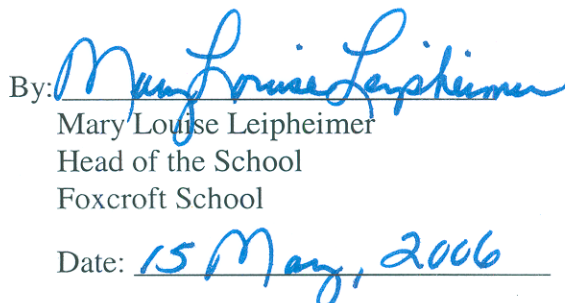 By: Mary Louise Leipheimer
Mary Louise Leipheimer
Head of the School
Foxcroft School
Date: 15 May, 2006